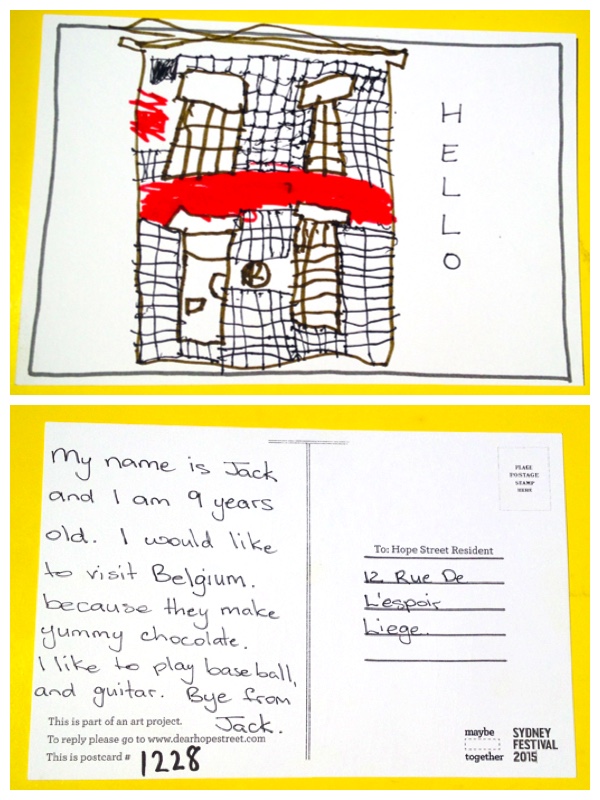 H
E
L
L
O
My name is Jack
and I am 9 years
old. I would like
to visit Belgium.
because they make
yummy chocolate.
I like to play baseball,
and guitar. Bye from
Jack.
This is part of an art project.
To reply please go to www.dearhopestreet.com
This is postcard # 1228
PLACE
POSTAGE
STAMP
HERE
To: Hope Street Resident
12 Rue De
L'espoir
Liege.
maybe
together
SYDNEY
FESTIVAL
2015